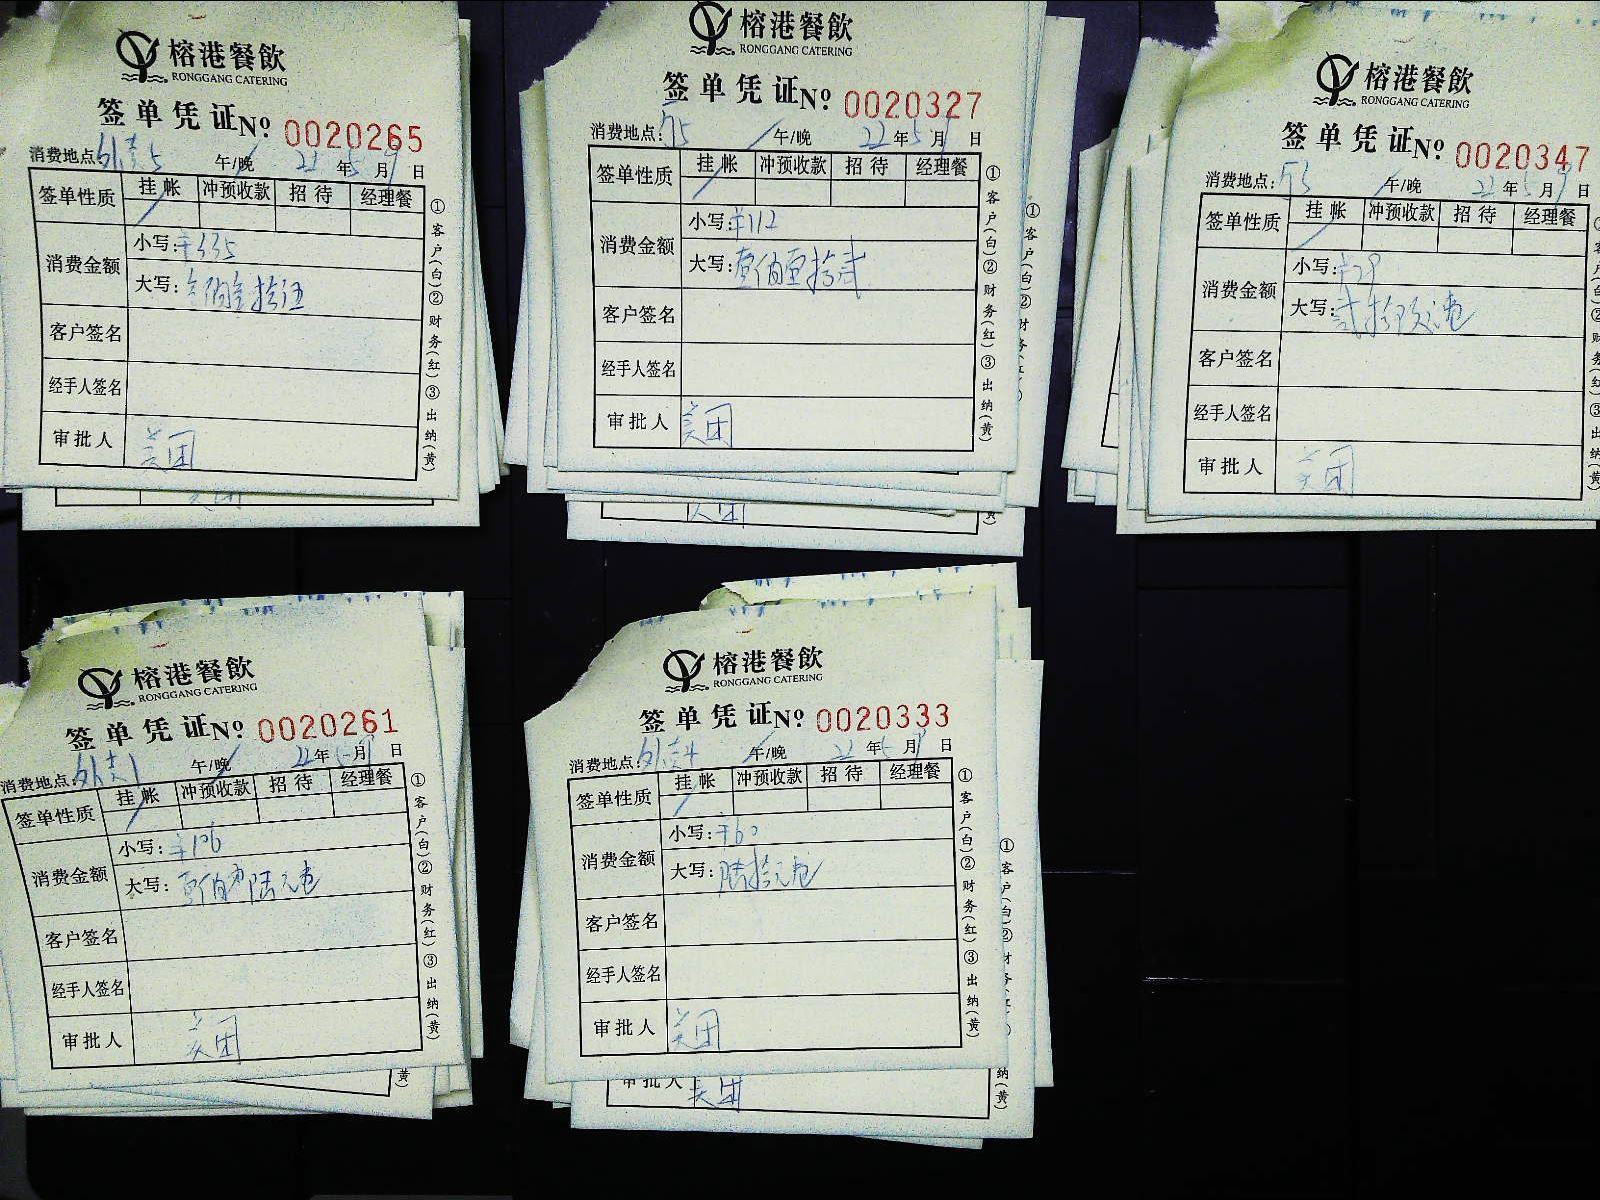 榕港餐飲
RONGGANG CATERING
签单凭证No 0020265
消费地点:外卖5 午/晚 22年5月9日
签单性质 挂帐 冲预收款 招待 经理餐
消费金额 小写:¥335
大写:叁佰叁拾伍
客户签名
经手人签名
审批人 美团
①客户(白)②财务(红)③出纳(黄)
榕港餐飲
RONGGANG CATERING
签单凭证No 0020327
消费地点:75 午/晚 22年5月9日
签单性质 挂帐 冲预收款 招待 经理餐
消费金额 小写:¥112
大写:壹佰壹拾贰
客户签名
经手人签名
审批人 美团
①客户(白)②财务(红)③出纳(黄)
①客户(白)②财务(红)
榕港餐飲
RONGGANG CATERING
签单凭证No 0020347
消费地点: 午/晚 22年5月9日
签单性质 挂帐 冲预收款 招待 经理餐
消费金额 小写:¥29
大写:贰拾玖元整
客户签名
经手人签名
审批人 美团
榕港餐飲
RONGGANG CATERING
签单凭证No 0020261
消费地点:外卖1 午/晚 22年5月9日
签单性质 挂帐 冲预收款 招待 经理餐
消费金额 小写:¥106
大写:壹佰零陆元整
客户签名
经手人签名
审批人 美团
①客户(白)②财务(红)③出纳(黄)
榕港餐飲
RONGGANG CATERING
签单凭证No 0020333
消费地点:外卖4 午/晚 22年5月9日
签单性质 挂帐 冲预收款 招待 经理餐
消费金额 小写:¥60
大写:陆拾元整
客户签名
经手人签名
审批人 美团
①客户(白)②财务(红)③出纳(黄)
审批人 美团